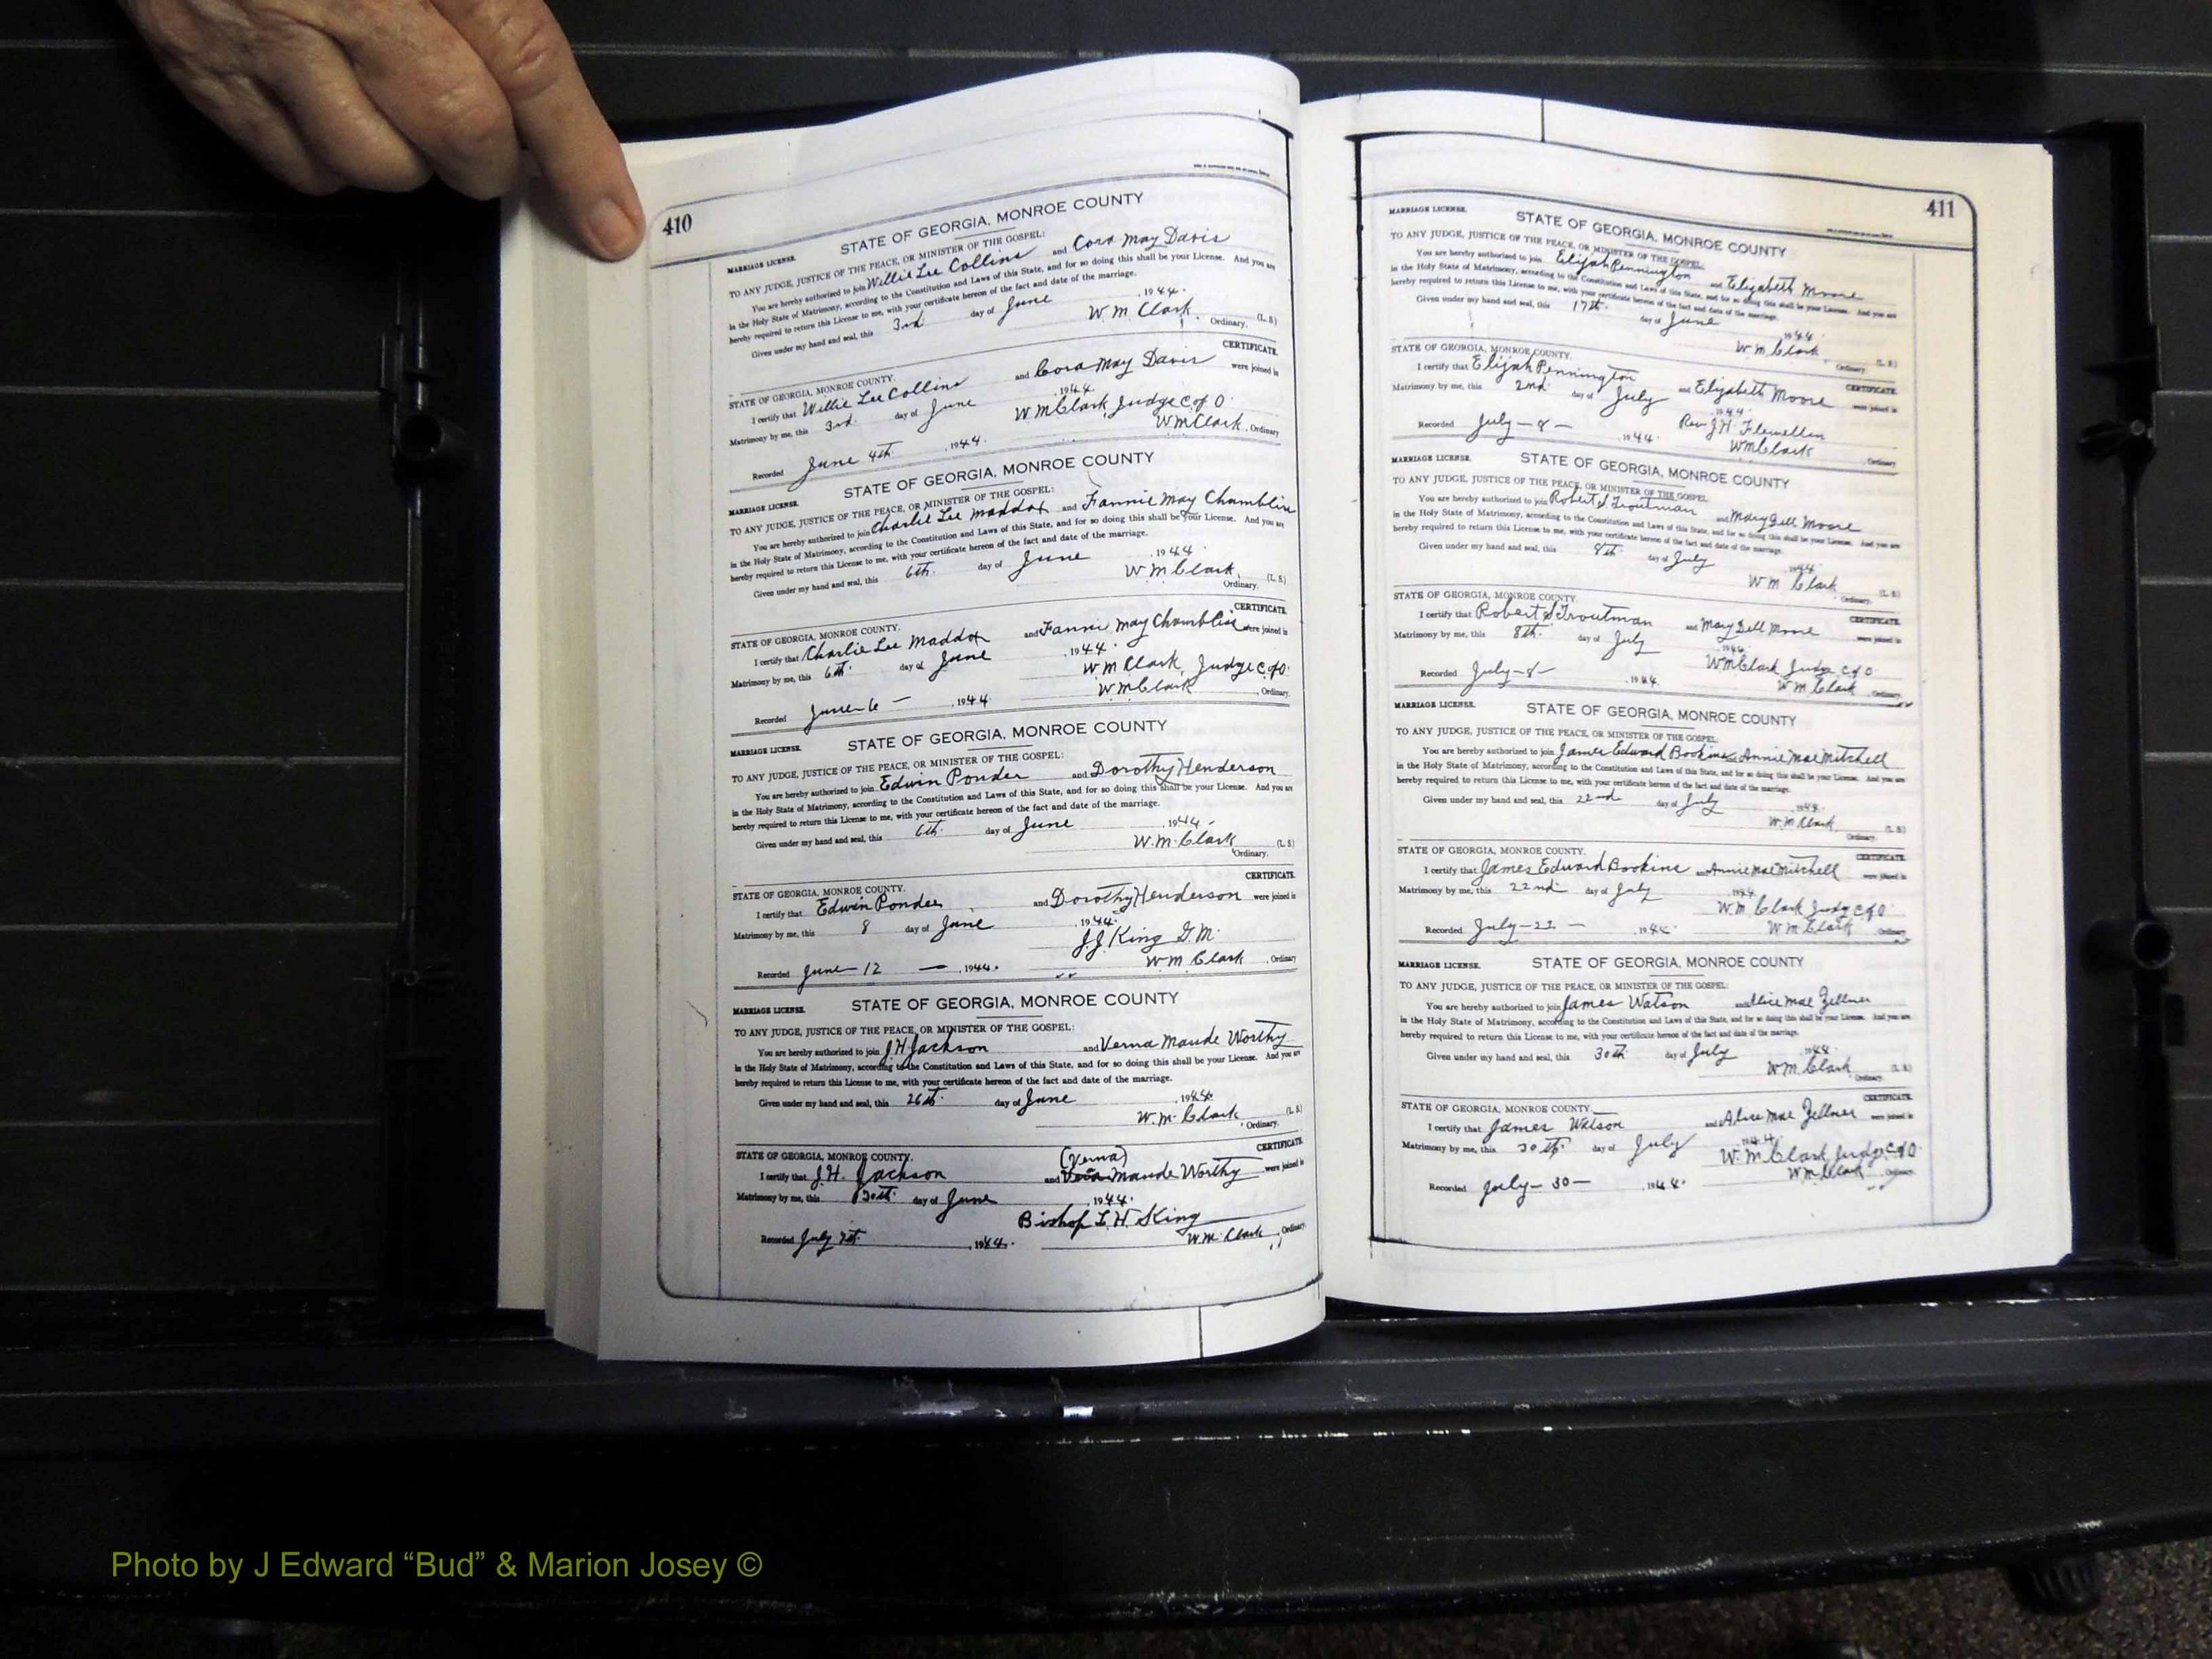 410
STATE OF GEORGIA, MONROE COUNTY
MARRIAGE LICENSE.
TO ANY JUDGE, JUSTICE OF THE PEACE, OR MINISTER OF THE GOSPEL:
You are hereby authorized to join Willie Lee Collins and Cora May Davis
in the Holy State of Matrimony, according to the Constitution and Laws of this State, and for so doing this shall be your License. And you are
hereby required to return this License to me, with your certificate hereon of the fact and date of the marriage.
Given under my hand and seal, this 3rd day of June, 1944.
W. M. Clark, (L. S)
Ordinary.
CERTIFICATE.
STATE OF GEORGIA, MONROE COUNTY.
I certify that Willie Lee Collins and Cora May Davis were joined in
Matrimony by me, this 3rd. day of June, 1944.
W M Clark Judge C of O.
Recorded June 4th, 1944. W M Clark, Ordinary
STATE OF GEORGIA, MONROE COUNTY
MARRIAGE LICENSE.
TO ANY JUDGE, JUSTICE OF THE PEACE, OR MINISTER OF THE GOSPEL:
You are hereby authorized to join Charlie Lee Maddox and Fannie May Chambliss
in the Holy State of Matrimony, according to the Constitution and Laws of this State, and for so doing this shall be your License. And you are
hereby required to return this License to me, with your certificate hereon of the fact and date of the marriage.
Given under my hand and seal, this 6th. day of June, 1944
W M Clark, (L. S.)
Ordinary.
CERTIFICATE.
STATE OF GEORGIA, MONROE COUNTY.
I certify that Charlie Lee Maddox and Fannie May Chambliss were joined in
Matrimony by me, this 6th. day of June, 1944.
W M Clark, Judge C of O.
Recorded June 6 —, 1944. W M Clark, Ordinary.
STATE OF GEORGIA, MONROE COUNTY
MARRIAGE LICENSE.
TO ANY JUDGE, JUSTICE OF THE PEACE, OR MINISTER OF THE GOSPEL:
You are hereby authorized to join Edwin Ponder and Dorothy Henderson
in the Holy State of Matrimony, according to the Constitution and Laws of this State, and for so doing this shall be your License. And you are
hereby required to return this License to me, with your certificate hereon of the fact and date of the marriage.
Given under my hand and seal, this 6th. day of June, 1944.
W. M. Clark (L. S)
Ordinary.
CERTIFICATE.
STATE OF GEORGIA, MONROE COUNTY.
I certify that Edwin Ponder and Dorothy Henderson were joined in
Matrimony by me, this 8 day of June, 1944.
J. J. King G. M.
Recorded June 12 —, 1944. W M Clark, Ordinary
STATE OF GEORGIA, MONROE COUNTY
MARRIAGE LICENSE.
TO ANY JUDGE, JUSTICE OF THE PEACE, OR MINISTER OF THE GOSPEL:
You are hereby authorized to join J. H. Jackson and Verna Maude Worthy
in the Holy State of Matrimony, according to the Constitution and Laws of this State, and for so doing this shall be your License. And you are
hereby required to return this License to me, with your certificate hereon of the fact and date of the marriage.
Given under my hand and seal, this 26th. day of June, 1944
W. M. Clark (L. S)
Ordinary.
CERTIFICATE
STATE OF GEORGIA, MONROE COUNTY. (Verna)
I certify that J. H. Jackson and Maude Worthy were joined in
Matrimony by me, this 30th. day of June, 1944.
Bishop L H King
Recorded July 7th., 1944. W. M. Clark, Ordinary.
411
MARRIAGE LICENSE. STATE OF GEORGIA, MONROE COUNTY
TO ANY JUDGE, JUSTICE OF THE PEACE, OR MINISTER OF THE GOSPEL:
You are hereby authorized to join Elijah Pennington and Elizabeth Moore
in the Holy State of Matrimony, according to the Constitution and Laws of this State, and for so doing this shall be your License. And you are
hereby required to return this License to me, with your certificate hereon of the fact and date of the marriage.
Given under my hand and seal, this 17th. day of June 1944.
W M Clark, (L. S.)
Ordinary.
STATE OF GEORGIA, MONROE COUNTY. CERTIFICATE.
I certify that Elijah Pennington and Elizabeth Moore were joined in
Matrimony by me, this 2nd. day of July, 1944.
Rev J. H. Flewellen
Recorded July — 8 —, 1944. W M Clark Ordinary
MARRIAGE LICENSE. STATE OF GEORGIA, MONROE COUNTY
TO ANY JUDGE, JUSTICE OF THE PEACE, OR MINISTER OF THE GOSPEL:
You are hereby authorized to join Robert S Troutman and Mary Dell Moore
in the Holy State of Matrimony, according to the Constitution and Laws of this State, and for so doing this shall be your License. And you are
hereby required to return this License to me, with your certificate hereon of the fact and date of the marriage.
Given under my hand and seal, this 8th. day of July 1944.
W M Clark (L. S.)
Ordinary.
STATE OF GEORGIA, MONROE COUNTY. CERTIFICATE.
I certify that Robert S Troutman and Mary Dell Moore were joined in
Matrimony by me, this 8th. day of July 1944.
W M Clark Judge C of O
Recorded July — 8 —, 1944. W M Clark, Ordinary.
MARRIAGE LICENSE. STATE OF GEORGIA, MONROE COUNTY
TO ANY JUDGE, JUSTICE OF THE PEACE, OR MINISTER OF THE GOSPEL:
You are hereby authorized to join James Edward Bookins Annie Mae Mitchell
in the Holy State of Matrimony, according to the Constitution and Laws of this State, and for so doing this shall be your License. And you are
hereby required to return this License to me, with your certificate hereon of the fact and date of the marriage.
Given under my hand and seal, this 22nd day of July 1944.
W. M Clark, (L. S.)
Ordinary.
STATE OF GEORGIA, MONROE COUNTY. CERTIFICATE.
I certify that James Edward Bookins and Annie Mae Mitchell were joined in
Matrimony by me, this 22nd day of July 1944
W. M. Clark Judge C of O.
Recorded July — 22 —, 1944. W M Clark Ordinary
MARRIAGE LICENSE. STATE OF GEORGIA, MONROE COUNTY
TO ANY JUDGE, JUSTICE OF THE PEACE, OR MINISTER OF THE GOSPEL:
You are hereby authorized to join James Watson and Alice Mae Zellner
in the Holy State of Matrimony, according to the Constitution and Laws of this State, and for so doing this shall be your License. And you are
hereby required to return this License to me, with your certificate hereon of the fact and date of the marriage.
Given under my hand and seal, this 30th. day of July 1944.
W M. Clark (L. S.)
Ordinary.
CERTIFICATE.
STATE OF GEORGIA, MONROE COUNTY.
I certify that James Watson and Alice Mae Zellner were joined in
Matrimony by me, this 30th. day of July 1944
W. M. Clark, Judge C of O.
Recorded July — 30 —, 1944. W M Clark Ordinary
Photo by J Edward “Bud” & Marion Josey ©